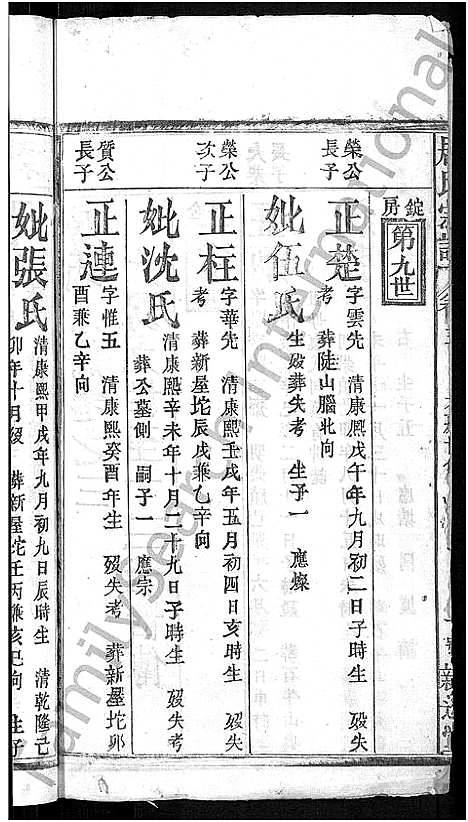 周氏宗譜
錠房
第九世
榮公長子
正楚 字雲先 清康熙戊午年九月初二日子時生 歿失考 葬陡山腦北向
妣伍氏 生歿葬失考 生子一 應燦
榮公次子
正柱 字華先 清康熙壬戌年五月初四日亥時生 歿失考 葬新屋坨辰戌兼乙辛向
妣沈氏 清康熙辛未年十月二十九日子時生 歿失考 葬公墓側 嗣子一 應宗
質公長子
正連 字惟五 清康熙癸酉年生 歿失考 葬新屋坨卯酉兼乙辛向
妣張氏 清康熙甲戌年九月初九日辰時生 清乾隆己卯年十月歿 葬新屋坨壬丙兼亥巳向 生子
FamilySearch International